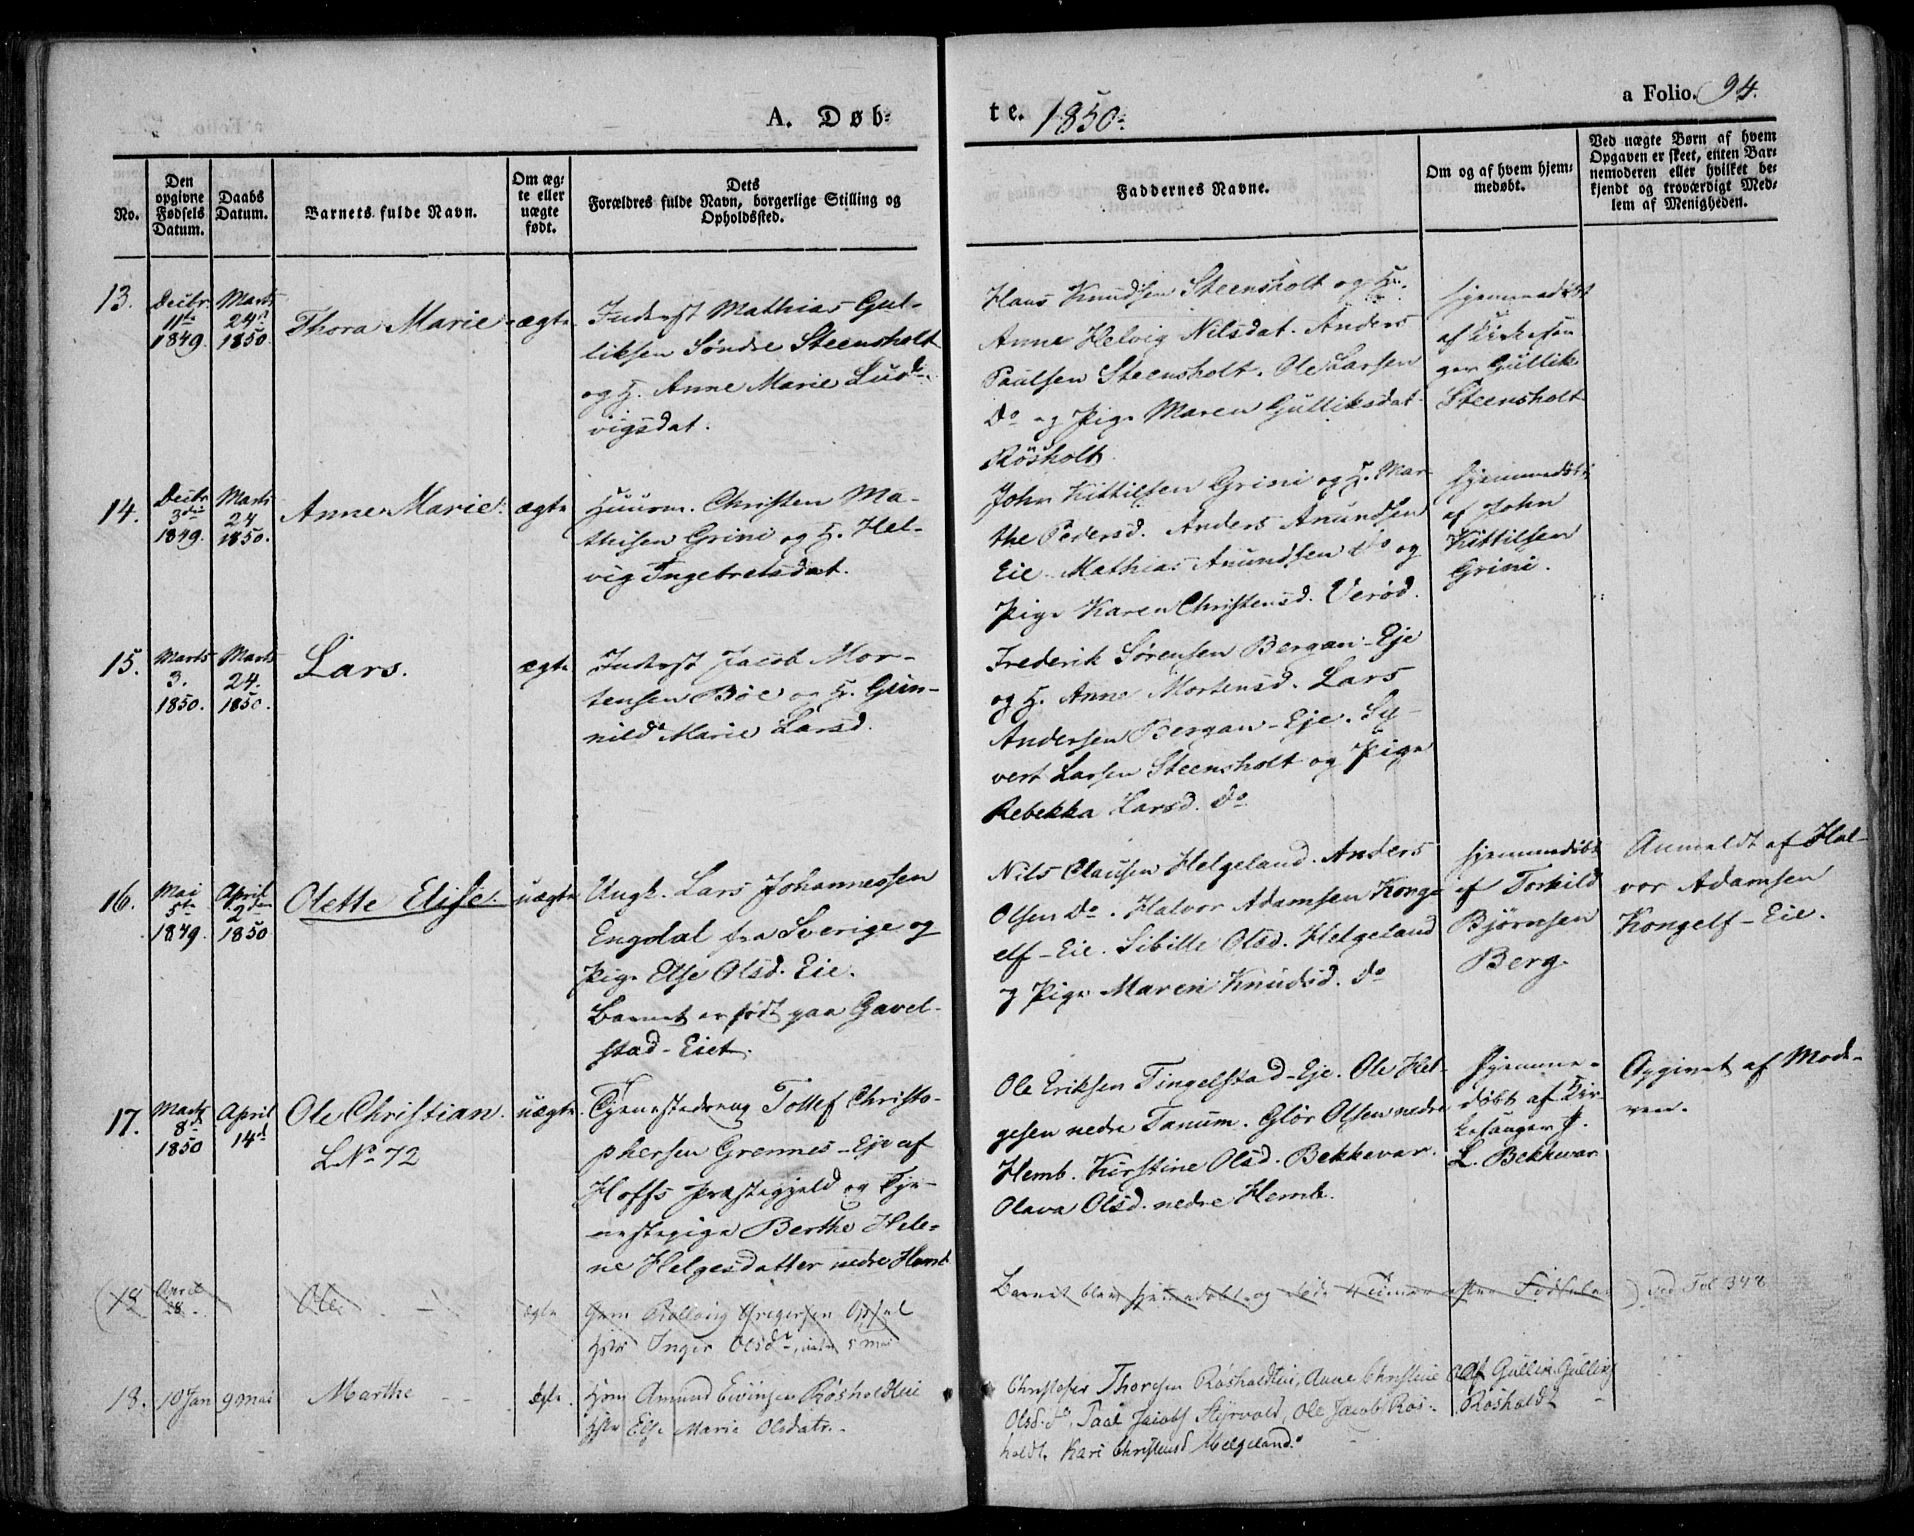 A. Døb-
te. 1850.
a Folio. 94.
No.
Den opgivne Fødsels Datum.
Daabs Datum.
Barnets fulde Navn.
Om ægte eller uægte født.
Dets Forældres fulde Navn, borgerlige Stilling og Opholdssted.
Faddernes Navne.
Om og af hvem hjemmedøbt.
Ved uægte Børn af hvem Opgaven er skeet, enten Barnemoderen eller hvilket bekjendt og troværdigt Medlem af Menigheden.
13.
Decbr
11te
1849.
Marts
24d
1850
Thora Marie
ægte
Inderst Mathias Gul-
liksen Søndre Steensholt
og H. Anne Marie Lud-
vigsdat.
Hans Knudsen Steensholt og H.
Anne Helvig Nilsdat. Anders
Paulsen Steensholt. Ole Larsen
Do og Pige Maren Gulliksdat
Røsholt
Hjemmedøbt
af Kirkesan
ger Gullik
Steensholt
14.
Decbr
3die
1849.
Marts
24
1850.
Anne Marie.
ægte
Huusm. Christen Ma-
thisen Grini og H. Hel-
vig Ingebretsdat.
John Kittilsen Grini og H. Mar
the Pedersd. Anders Anundsen
Eie. Mathias Anundsen do og
Pige Karen Christensd. Verød.
Hjemmedøbt
af John
Kittilsen
Grini.
15.
Marts
3.
1850.
Marts
24.
1850.
Lars.
ægte
Inderst Jacob Mor-
tensen Böe og H. Gun-
nild Marie Larsd.
Frederik Sørensen Bergan-Eje
og H. Anne Mortensd. Lars
Andersen Bergan-Eje. Sy-
vert Larsen Steensholt og Pige
Rebekka Larsd. Do
16.
Mai
5te
1849.
April
2den
1850
Olette Elise.
uægte
Ungk. Lars Johannessen
Engdal fra Sverige og
Pige Else Olsd. Eie.
Barnet er født paa Gavel-
stad-Eiet.
Nils Clausen Helgeland. Anders
Olsen Do. Halvor Adamsen Kong-
elf-Eie. Sibille Olsd. Helgeland
og Pige Maren Knudsd. Do
Hjemmedøbt
af Torkild
Björnsen
Berg.
Anmeldt af Hal-
vor Adamsen
Kongelf-Eie.
17.
Marts
8de
1850
April
14d
Ole Christian.
L. No 72
uægte
Tjenestedreng Tollef Christo-
phersen Grennes-Eje af
Hoffs Præstegjeld og Tje-
nestepige Berthe Hele-
ne Helgesdatter nedre Hemb
Ole Eriksen Tingelstad-Eje. Ole Hel-
gesen nedre Tanum. Glør Olsen nedre
Hemb. Kirstine Olsd. Bekkevar.
Olava Olsd. nedre Hemb.
Hjemme-
døbt af Kir
kesanger H.
L. Bekkevar
Opgivet af Mode-
ren.
(18
April
28.
Ole
ægte
Gregersen Opsal
Inger Olsd 5 mai
Barnet blev hjemmedøbt og døde Fødselen) ved Fol 348
18.
10 Jan
9 mai
Marthe
ægte.
Hsm Amund Evensen Røsholdteie
Hstr Else Marie Olsdatr.
Christofer Thorsen Røsholdteie, Anne Christine
Olsd. do, Paal Jacobs Styrvold, Ole Jacob Røs-
holdt. Kari Christensd Helgeland.
af Gullik Gulliks
Røsholdt